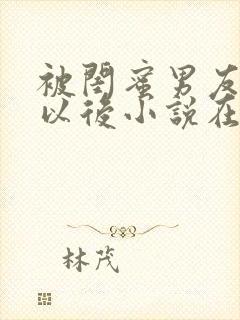 被閨蜜男友
以後小說在
林茂